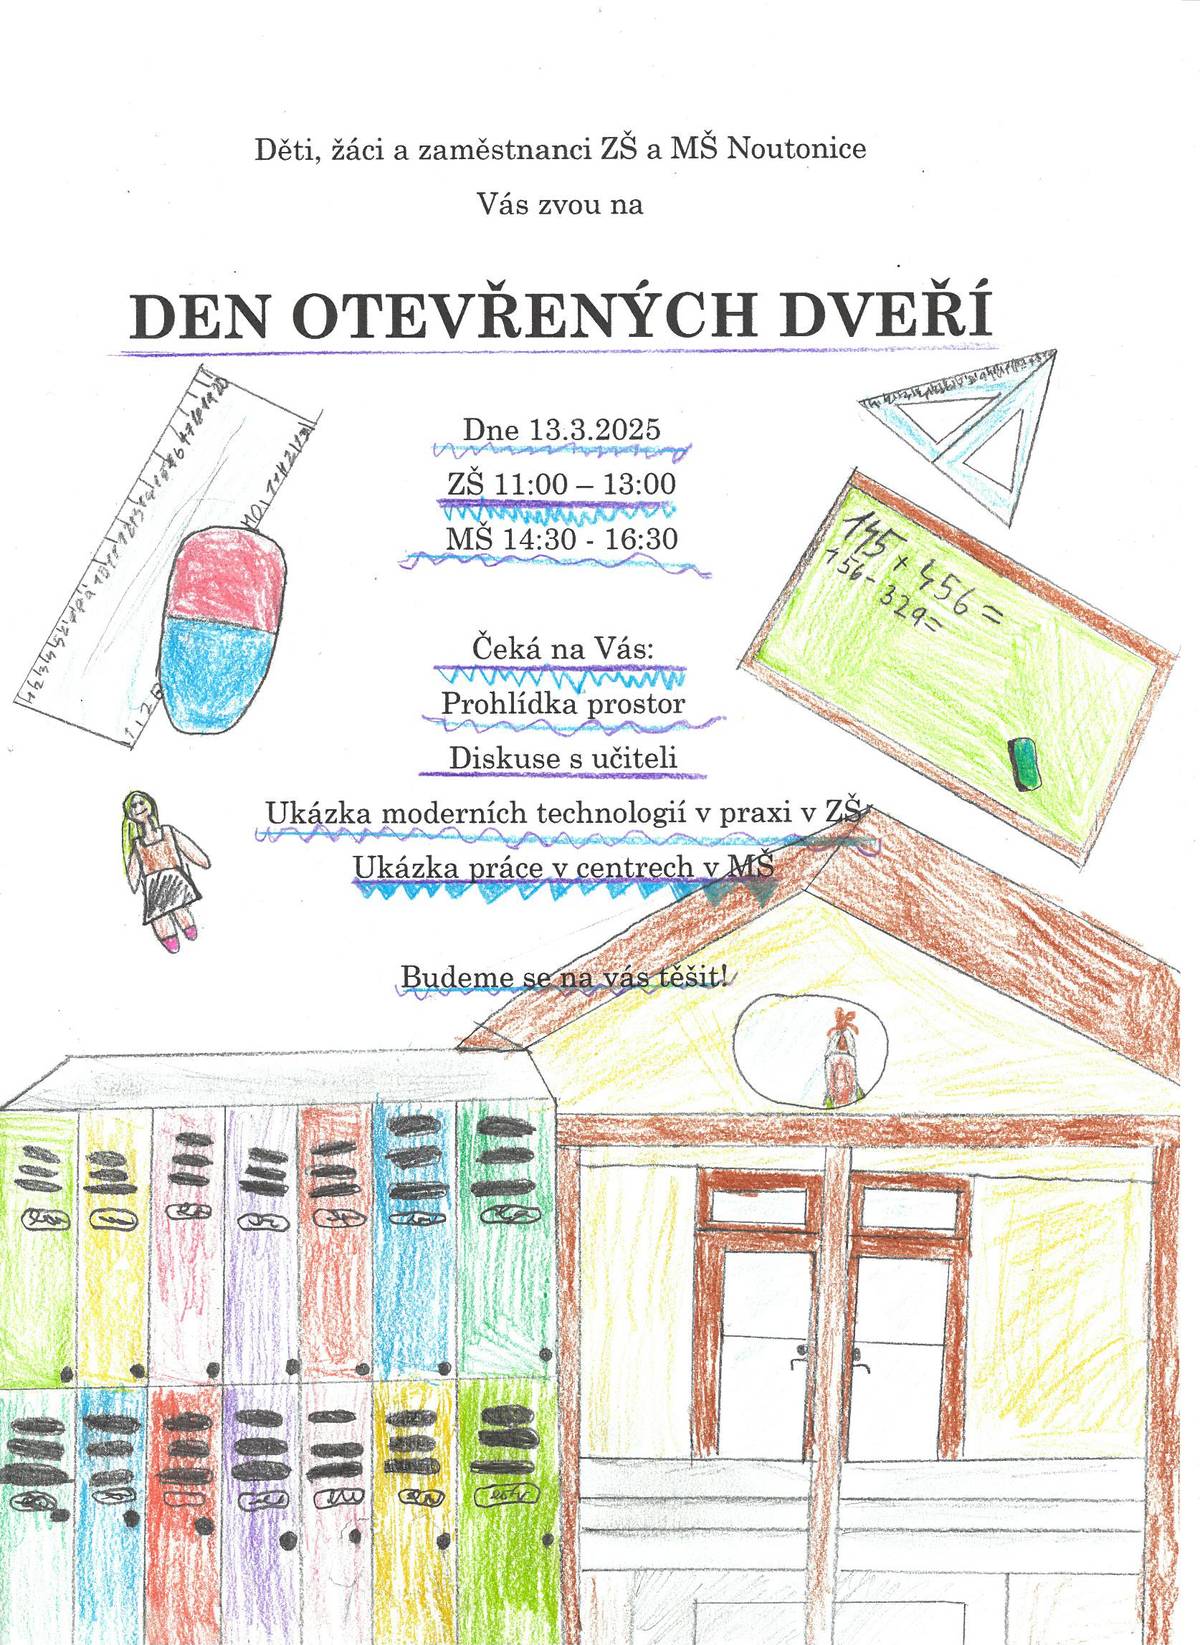 Děti, žáci a zaměstnanci ZŠ a MŠ Noutonice
Vás zvou na
DEN OTEVŘENÝCH DVEŘÍ
Dne 13.3.2025
ZŠ 11:00 – 13:00
MŠ 14:30 - 16:30
145 × 456 =
156 - 329=
Čeká na Vás:
Prohlídka prostor
Diskuse s učiteli
Ukázka moderních technologií v praxi v ZŠ
Ukázka práce v centrech v MŠ
Budeme se na vás těšit!